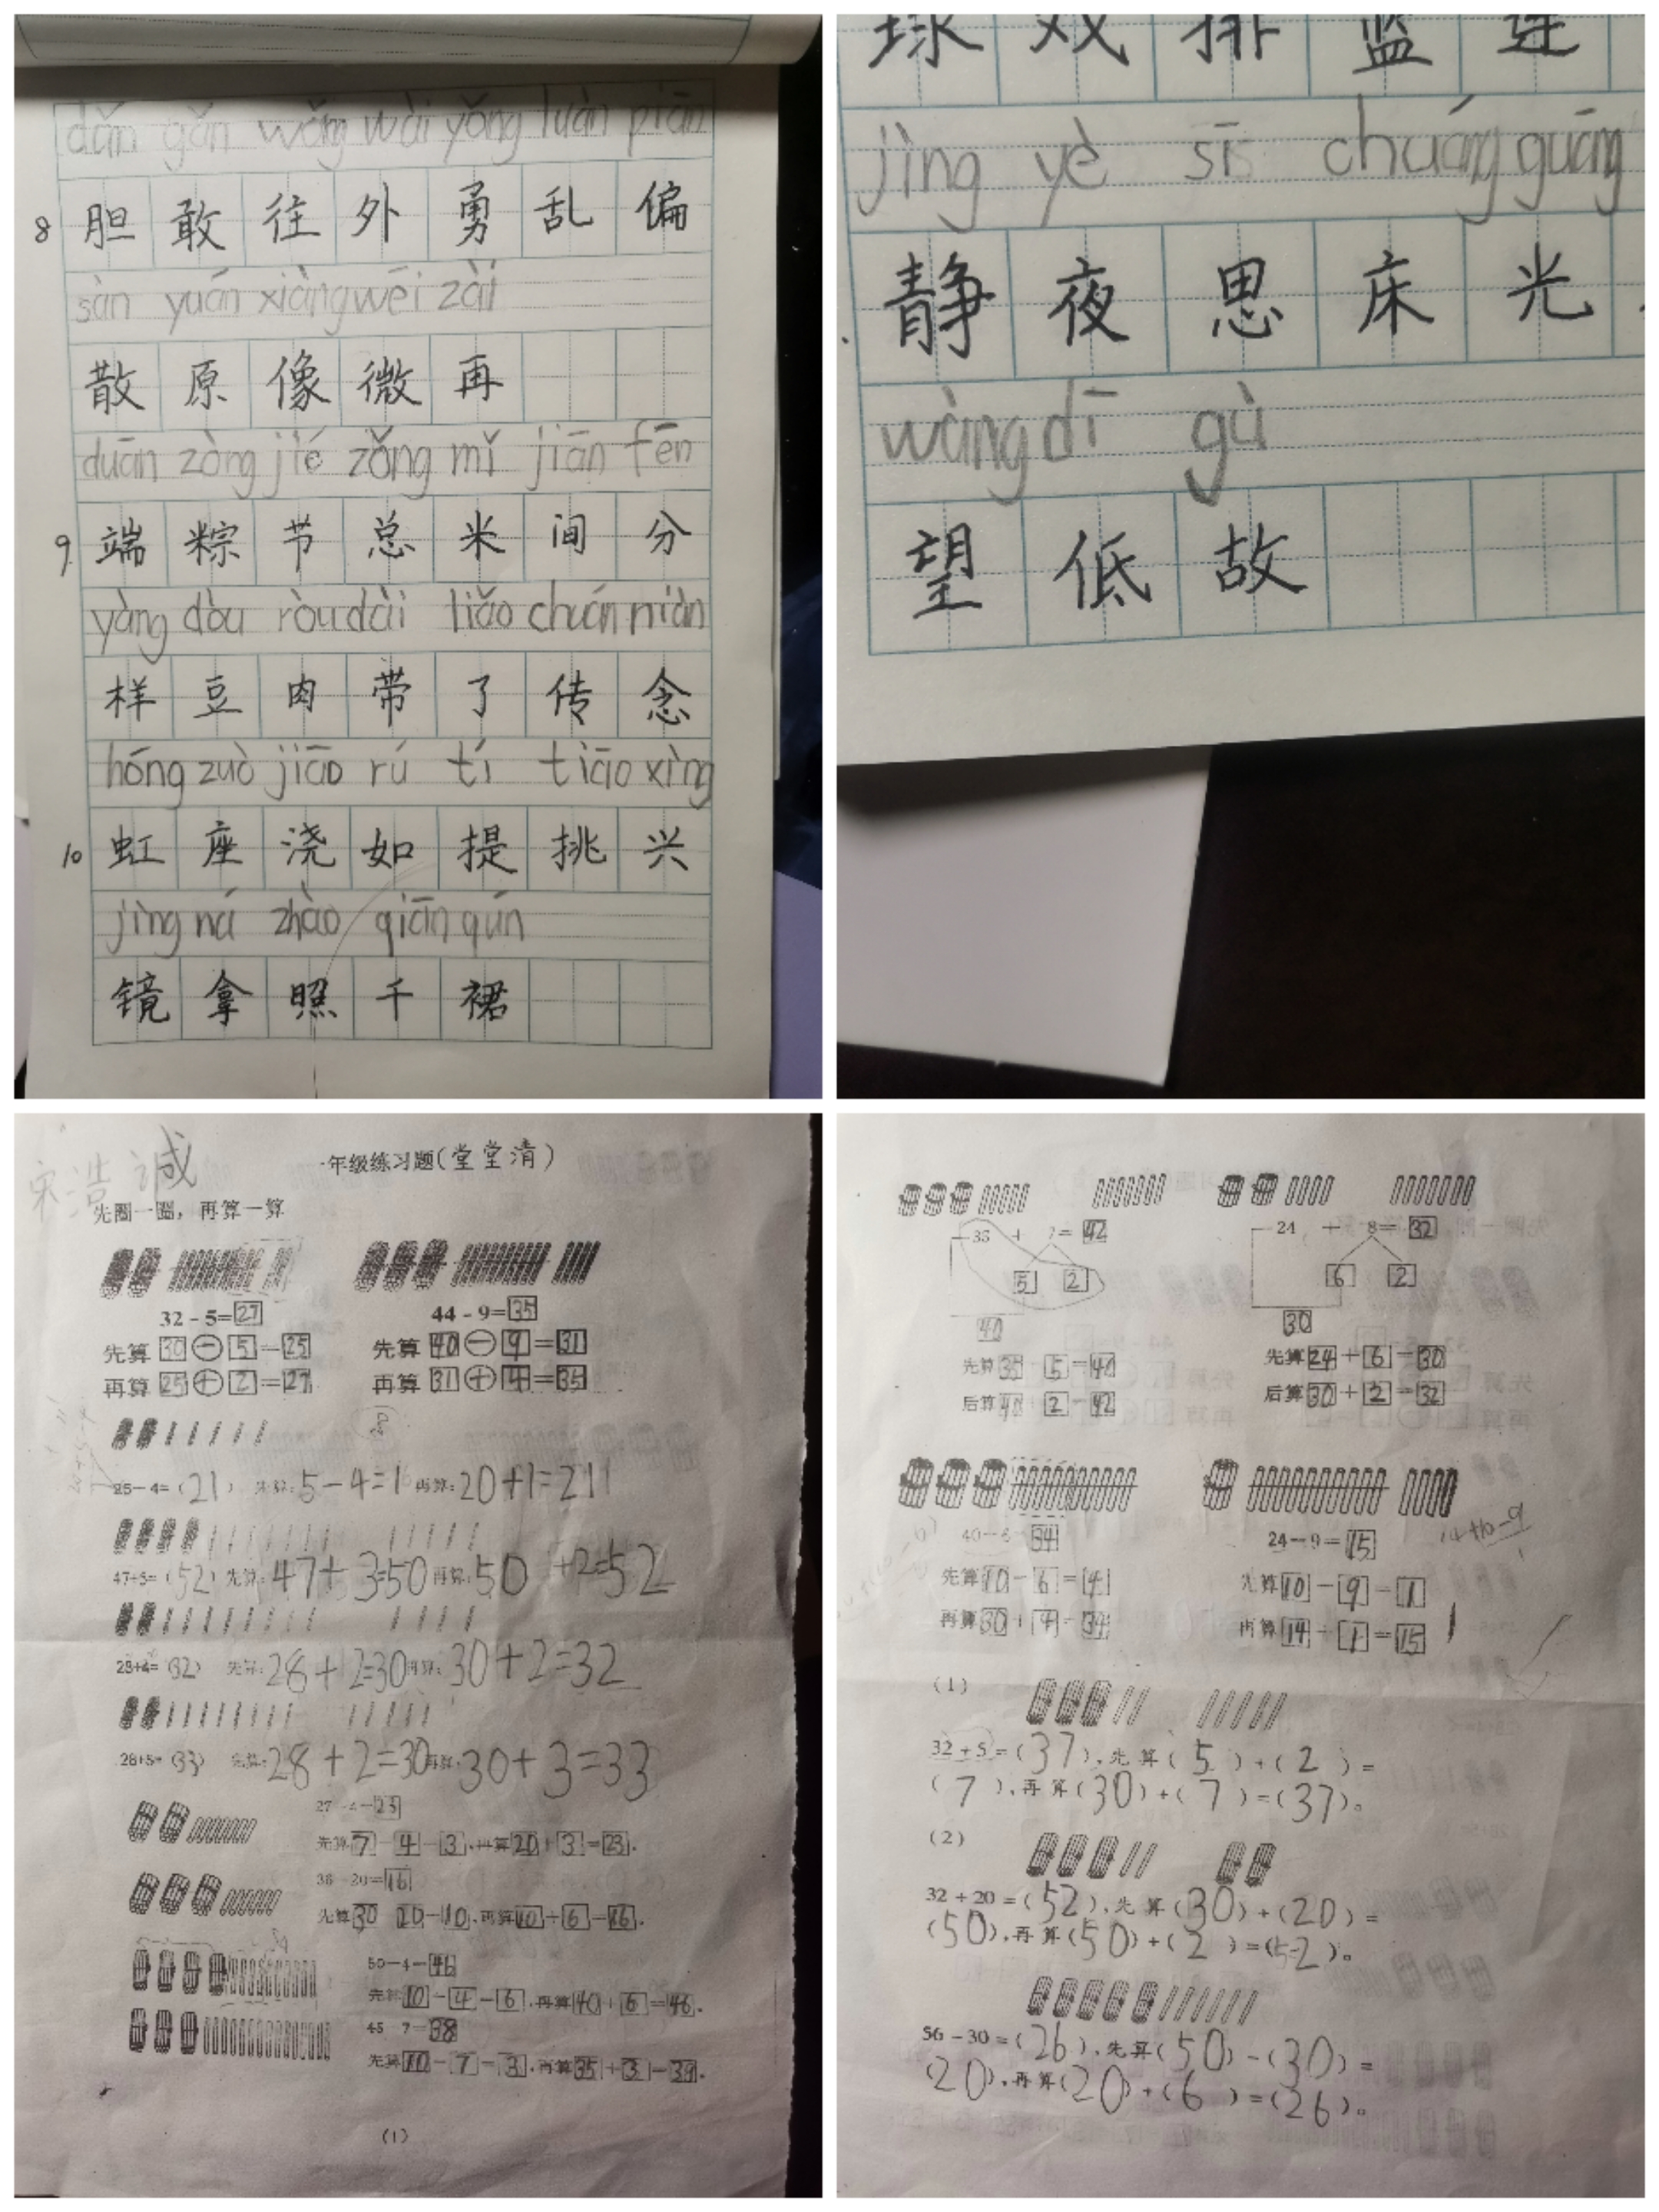 dǎn gǎn wǎng wài yǒng luàn piān
8 胆 敢 往 外 勇 乱 偏
sàn yuán xiàng wēi zài
散 原 像 微 再
duān zòng jié zǒng mǐ jiān fēn
9. 端 粽 节 总 米 间 分
yàng dòu ròu dài liǎo chuán niàn
样 豆 肉 带 了 传 念
hóng zuò jiāo rú tí tiāo xìng
10 虹 座 浇 如 提 挑 兴
jìng ná zhào qiān qún
镜 拿 照 千 裙
球 戏 排 篮 连
jìng yè sī chuáng guāng
静 夜 思 床 光
wàng dī gù
望 低 故
宋浩诚
一年级练习题(堂堂清)
先圈一圈，再算一算
32-5=27 44-9=35
先算 30-5=25 先算 40-9=31
再算 25+2=27 再算 31+4=35
8
25-4=(21) 先算:5-4=1 再算:20+1=21
47+5=(52) 先算:47+3=50 再算:50+2=52
28+4=(32) 先算:28+2=30 再算:30+2=32
28+5=(33) 先算:28+2=30 再算:30+3=33
27-4=23
先算7-4=3,再算20+3=23.
36-20=16
先算30 20=10,再算10+6=16.
50-4=46
先算10-4=6,再算40+6=46.
45-7=38
先算10-7=3,再算35+3=38.
(1)
35+7=42 24+8=32
5 2 6 2
40 30
先算35 5=40 先算24+6=30
后算40 2=42 后算30+2=32
40-6=34 24-9=15
先算10-6=4 先算10-9=1
再算30+4=34 再算14+1=15
(1)
32+5=(37),先算(5)+(2)=
(7),再算(30)+(7)=(37)。
(2)
32+20=(52),先算(30)+(20)=
(50),再算(50)+(2)=(52)。
56-30=(26),先算(50)-(30)=
(20),再算(20)+(6)=(26)。